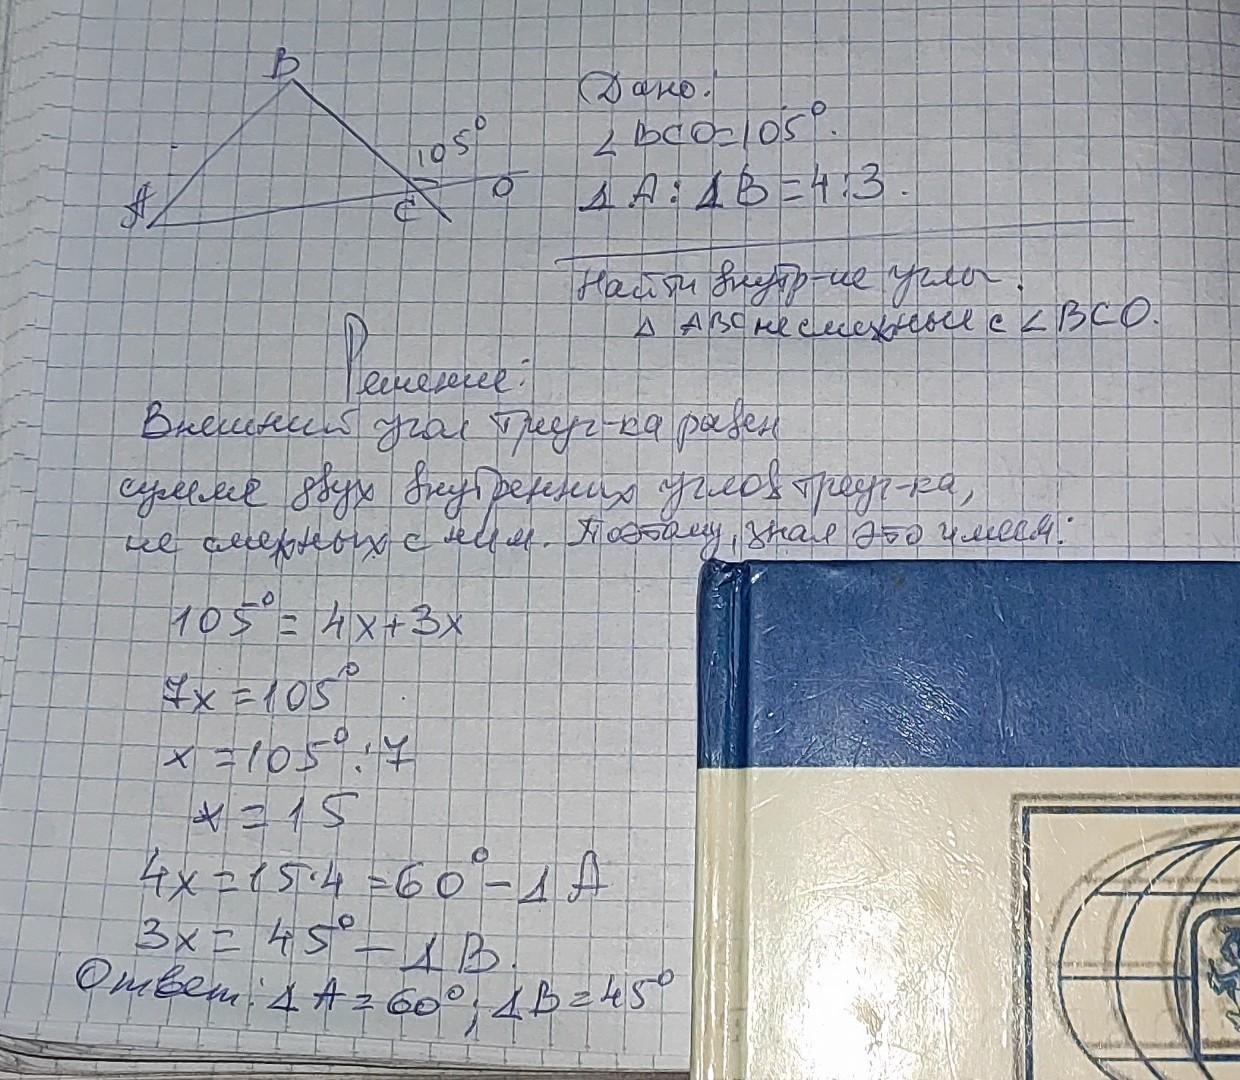 B
105°
A
C
O
Дано:
∠BCO=105°.
∠A:∠B=4:3.
Найти внутр-ие углы
∆ ABC не смежные с ∠BCO.
Решение:
Внешний угол треуг-ка равен
сумме двух внутренних углов треуг-ка,
не смежных с ним. Поэтому, зная это имеем:
105°=4x+3x
7x=105°
x=105°:7
x=15
4x=15·4=60°-∠A
3x=45°-∠B.
Ответ: ∠A=60°; ∠B=45°